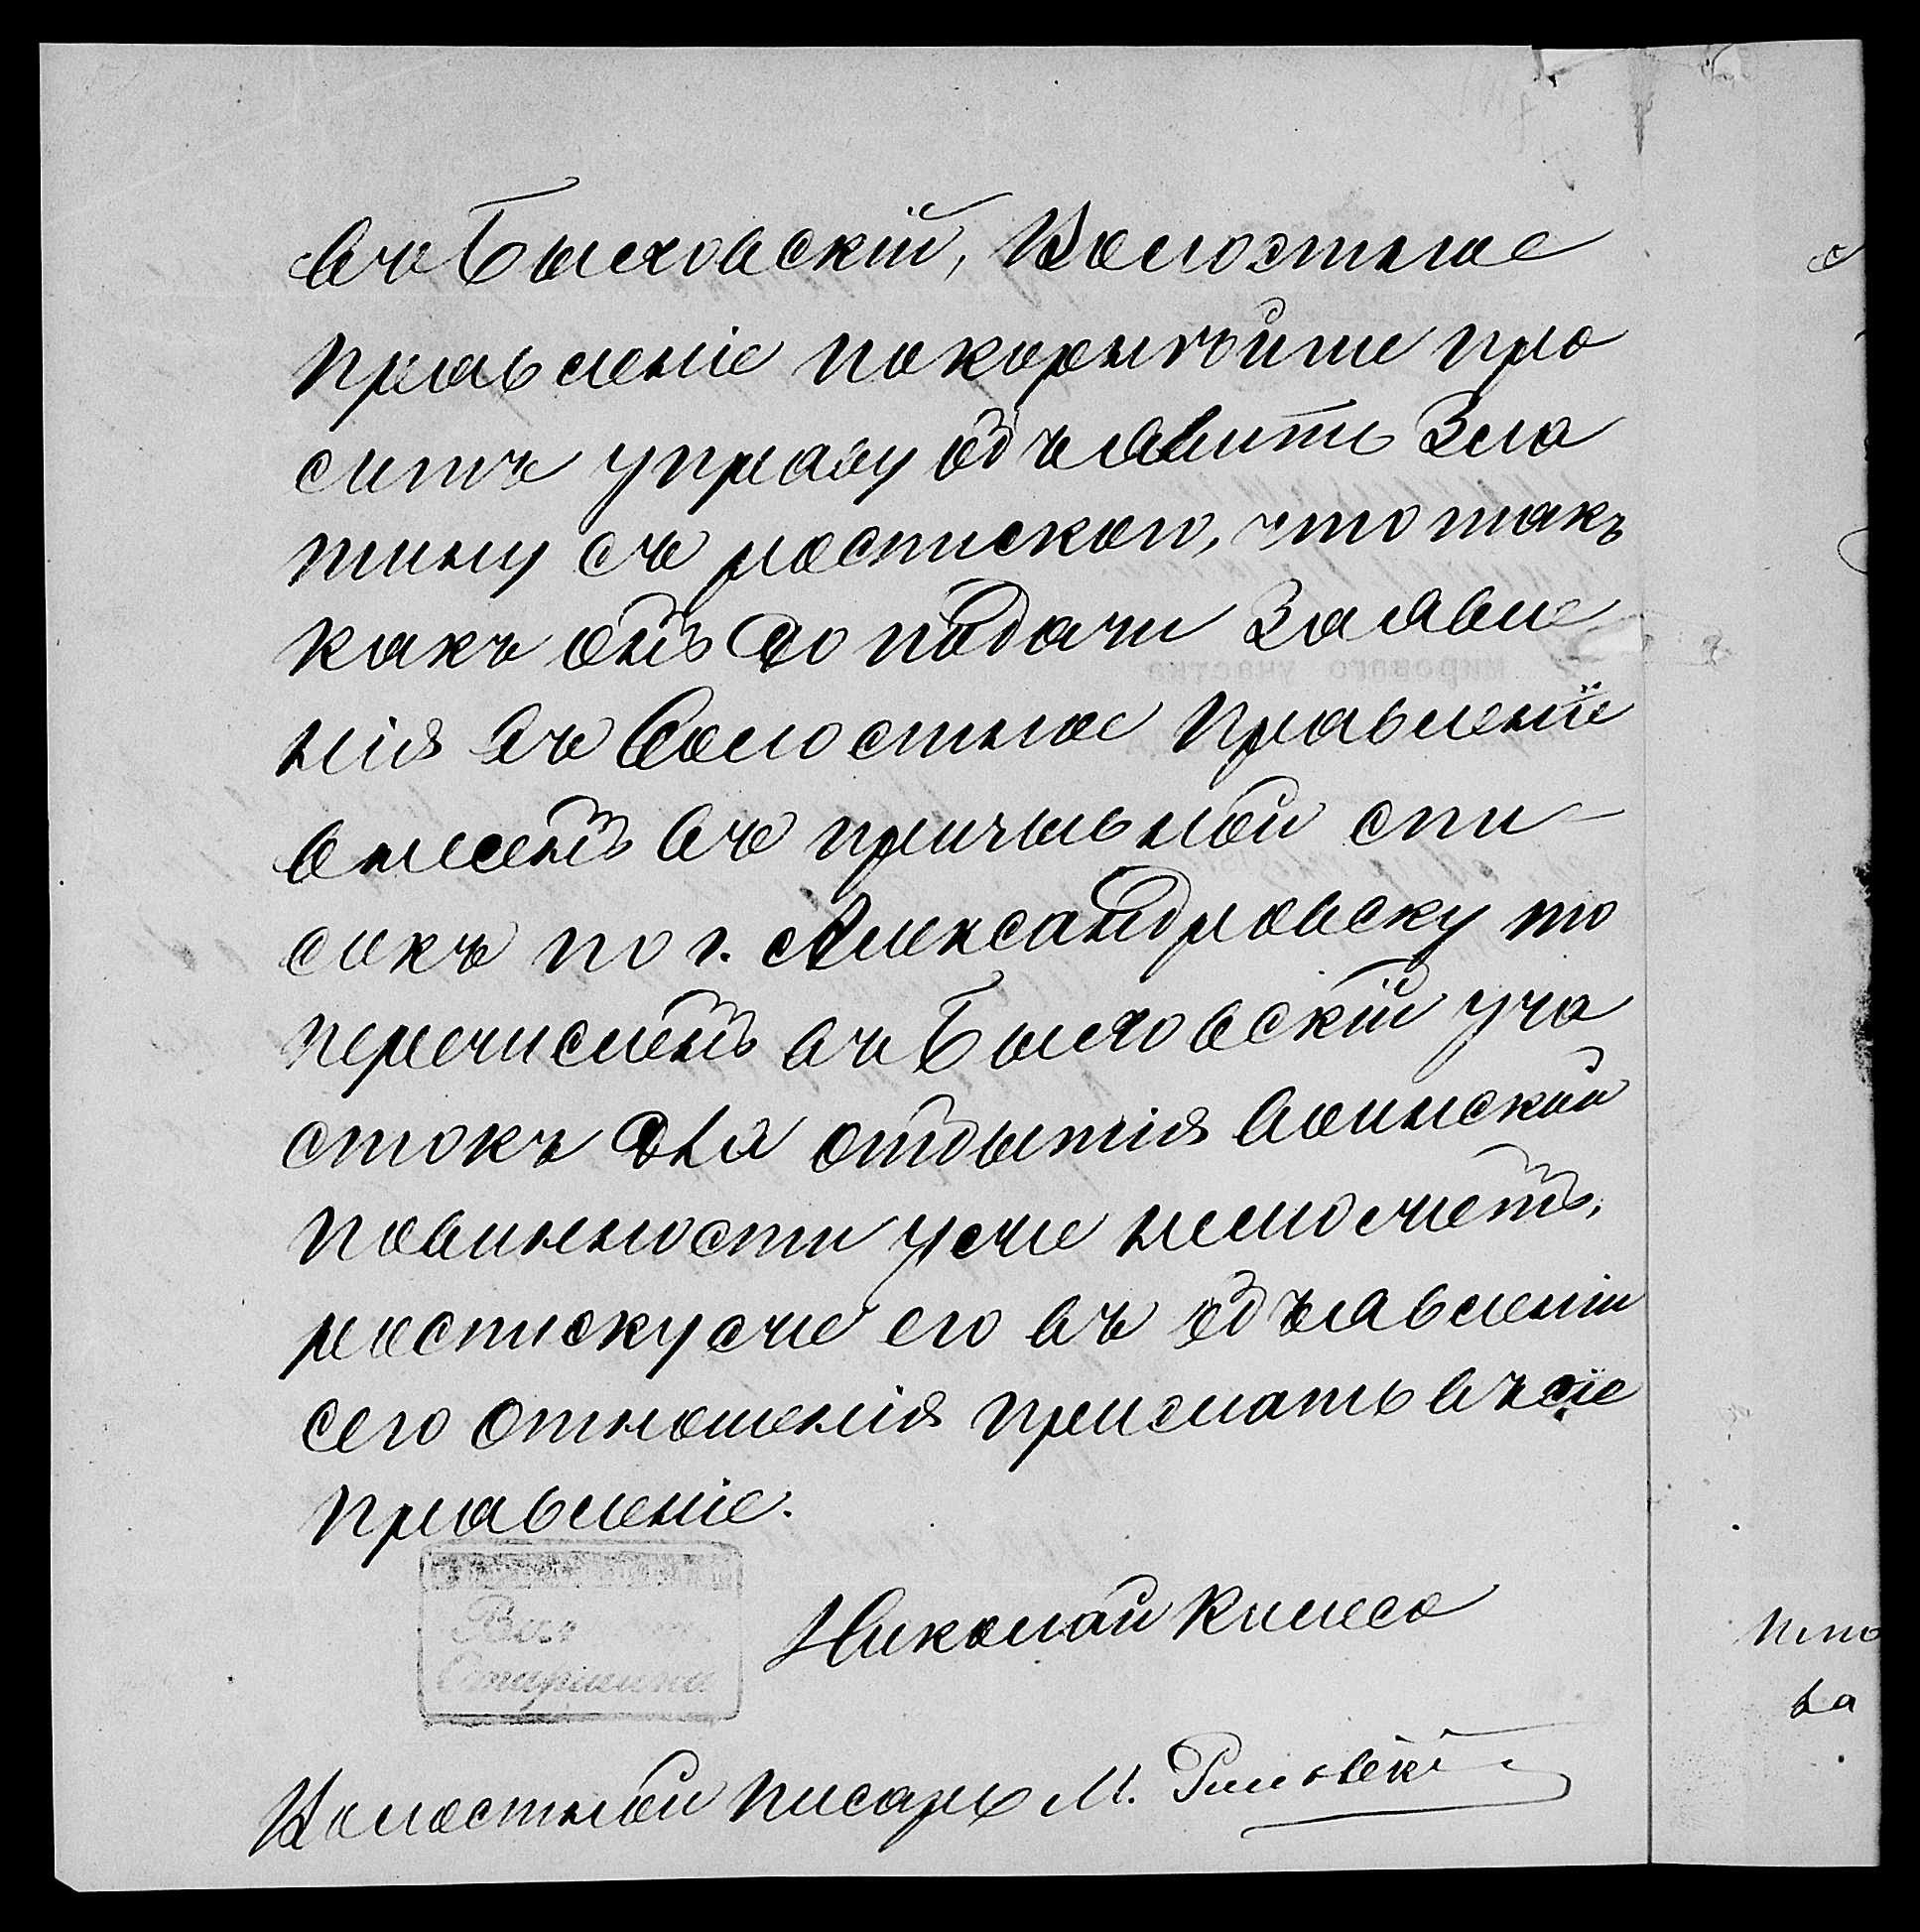 въ Быховскій, Волостное
Правленіе покорнѣйше про
ситъ управу объявить Зла
тину съ роспиской, что такъ
какъ онъ до подачи Заявле
нія въ Волостное Правленіе
внесенъ въ призывной спи-
сокъ по г. Александровску то
перечисленъ въ Быховскій уча
стокъ для отбытія воинской
повинности уже неможетъ,
росписку же его въ объявленіи
сего отношенія прислать въ сіе
Правленіе.
Старшина
Николай
Волостной писарь М.